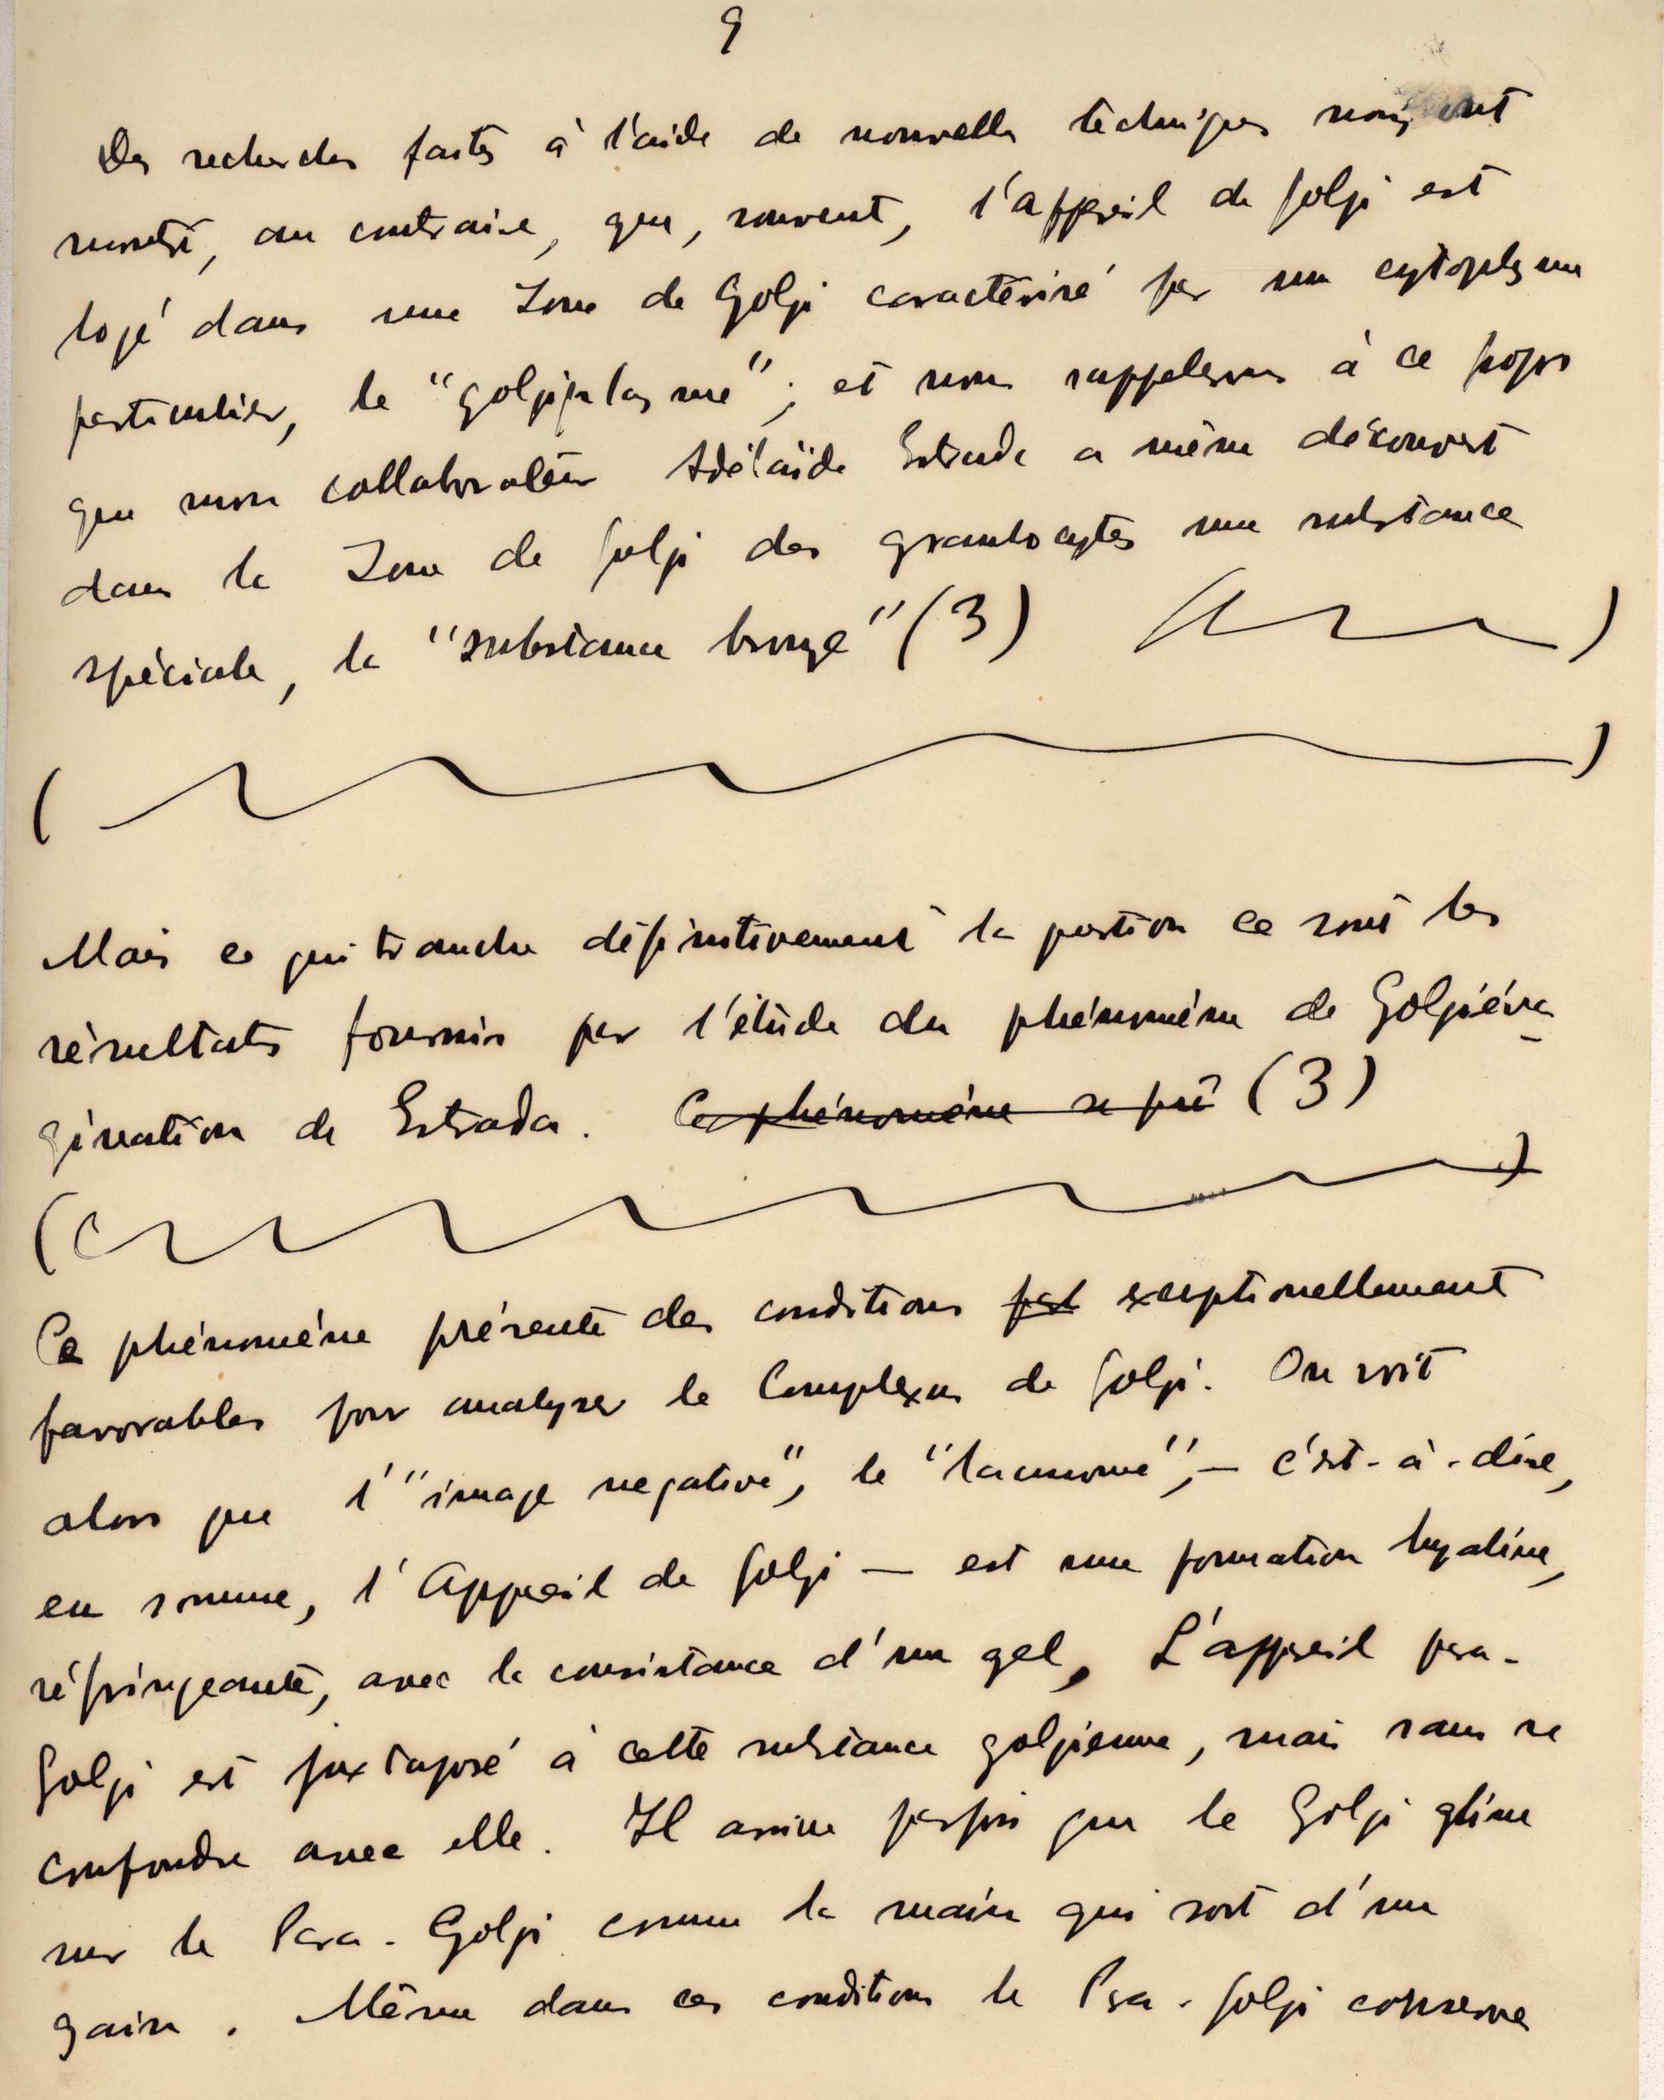 9
Des recherches faites à l'aide de nouvelles techniques nous ont
montré, au contraire, que, souvent, l'appareil de Golgi est
logé dans une Zone de Golgi caractérisé par un cytoplasme
particulier, le "golgiplasme"; et nous rappelerons à ce propos
que mon collaborateur Adélaïde Estrada a même découvert
dans la Zone de Golgi des granulocytes une substance
spéciale, la "substance brunge" (3) ( )
( )
Mais ce qui tranche définitivement la question ce sont les
résultats fournis par l'étude du phénomène de Golgiéva-
gination de Estrada. Ce phénomène se pré (3)
( )
Ce phénomène présente des conditions exceptionellement
favorables pour analyser le Complexus de Golgi. On voit
alors que l'"image negative", le "lacunome", — c'est-à-dire,
en somme, l'Appareil de Golgi — est une formation hyaline,
réfringeante, avec la consistance d'un gel. L'appareil para-
Golgi est juxtaposé à cette substance golgienne, mais sans se
confondre avec elle. Il arrive parfois que le Golgi glisse
sur le Para-Golgi comme la main qui sort d'un
gain. Même dans ces conditions le Para-Golgi conserve